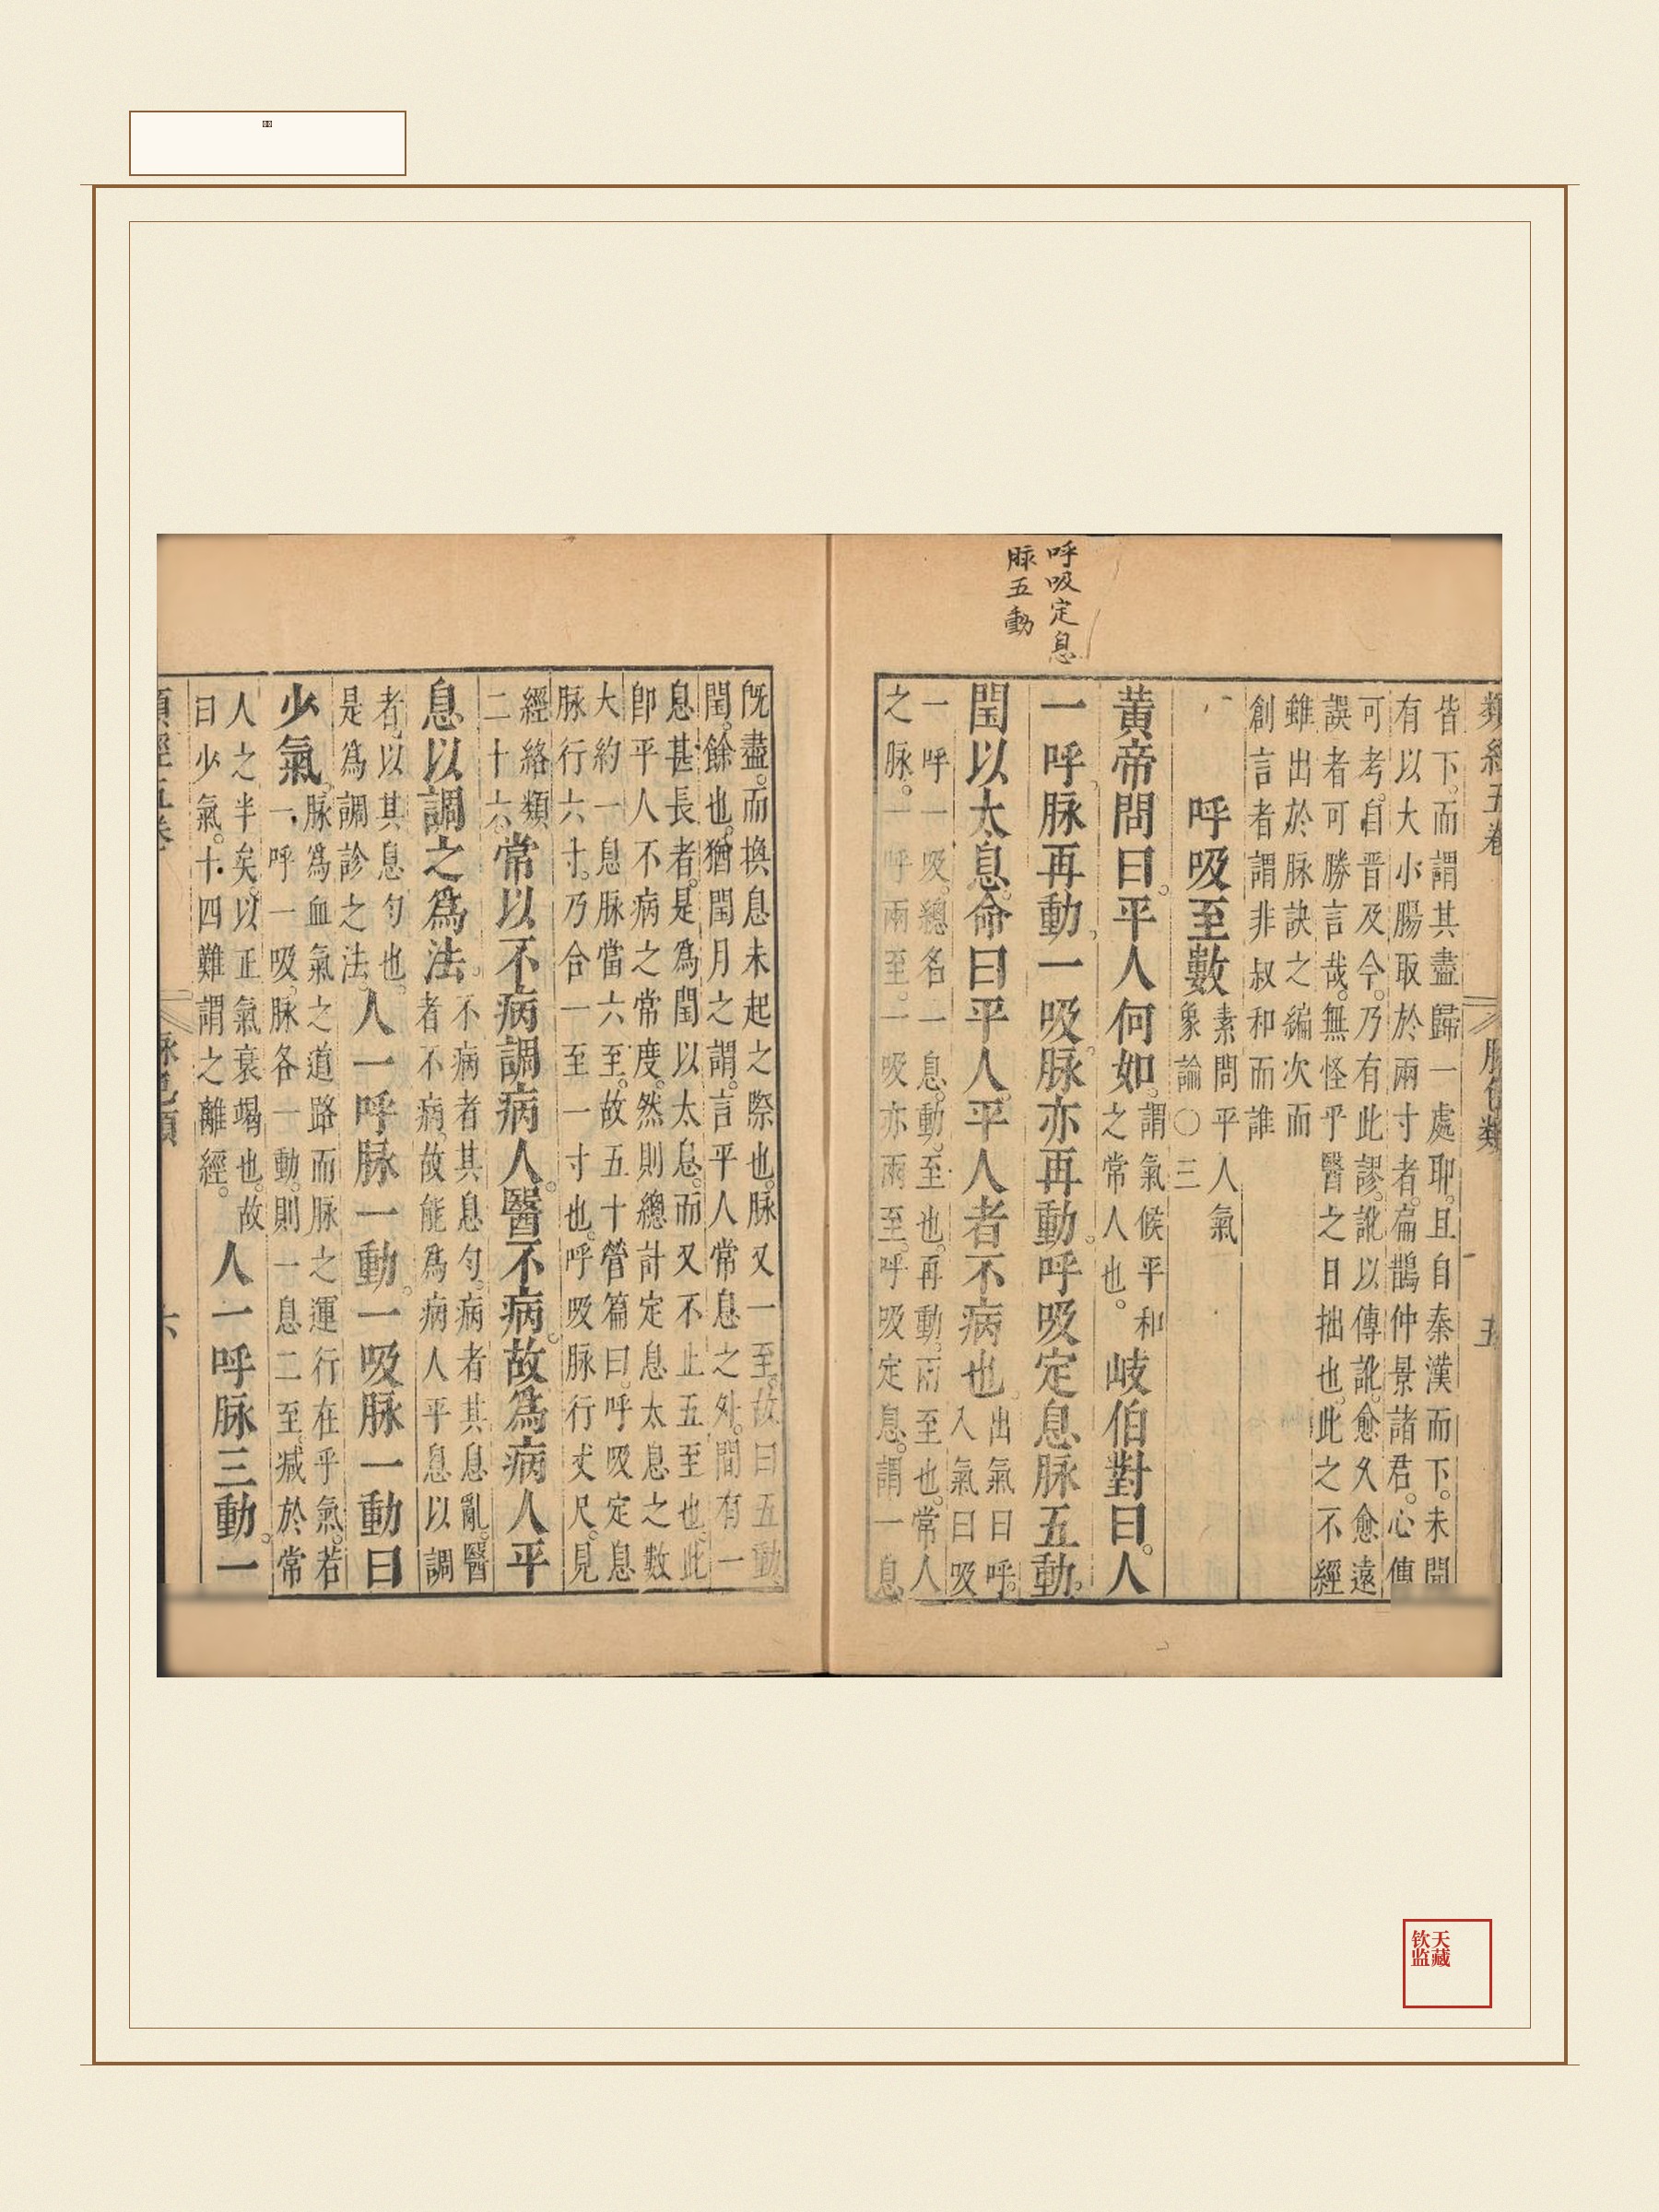 呼吸定息
脉五動
類經五卷
脉色類
五
皆下。而謂其盡歸一處耶。且自秦漢而下。未聞
有以大小腸取於兩寸者。扁鵲仲景諸君。心傳
可考。自晋及今。乃有此謬。訛以傳訛。愈久愈遠
誤者可勝言哉。無怪乎醫之日拙也。此之不經
雖出於脉訣之編次而
創言者謂非叔和而誰
呼吸至數
素問平人氣
象論〇三
黄帝問曰。平人何如。
謂氣候平和
之常人也。
岐伯對曰。人
一呼脉再動。一吸脉亦再動。呼吸定息脉五動。
閏以太息。命曰平人。平人者不病也。
出氣曰呼。
入氣曰吸
一呼一吸。總名一息。動。至也。再動。兩至也。常人
之脉。一呼兩至。一吸亦兩至。呼吸定息。謂一息
旣盡。而換息未起之際也。脉又一至。故曰五動
閏。餘也。猶閏月之謂。言平人常息之外。間有一
息甚長者。是爲閏以太息。而又不止五至也。此
即平人不病之常度。然則總計定息太息之數
大約一息脉當六至。故五十營篇曰。呼吸定息
脉行六寸。乃合一至一寸也。呼吸脉行丈尺。見
經絡類
二十六。
常以不病調病人。醫不病。故爲病人平
息以調之爲法。
不病者其息勻。病者其息亂。醫
者不病。故能爲病人平息以調
者。以其息勻也。
是爲調診之法。
人一呼脉一動。一吸脉一動曰
少氣。
脉爲血氣之道路而脉之運行在乎氣。若
一呼一吸。脉各一動。則一息二至。减於常
人之半矣。以正氣衰竭也。故
曰少氣。十四難謂之離經。
人一呼脉三動。一
類經五卷
脉色類
六
钦天
监藏